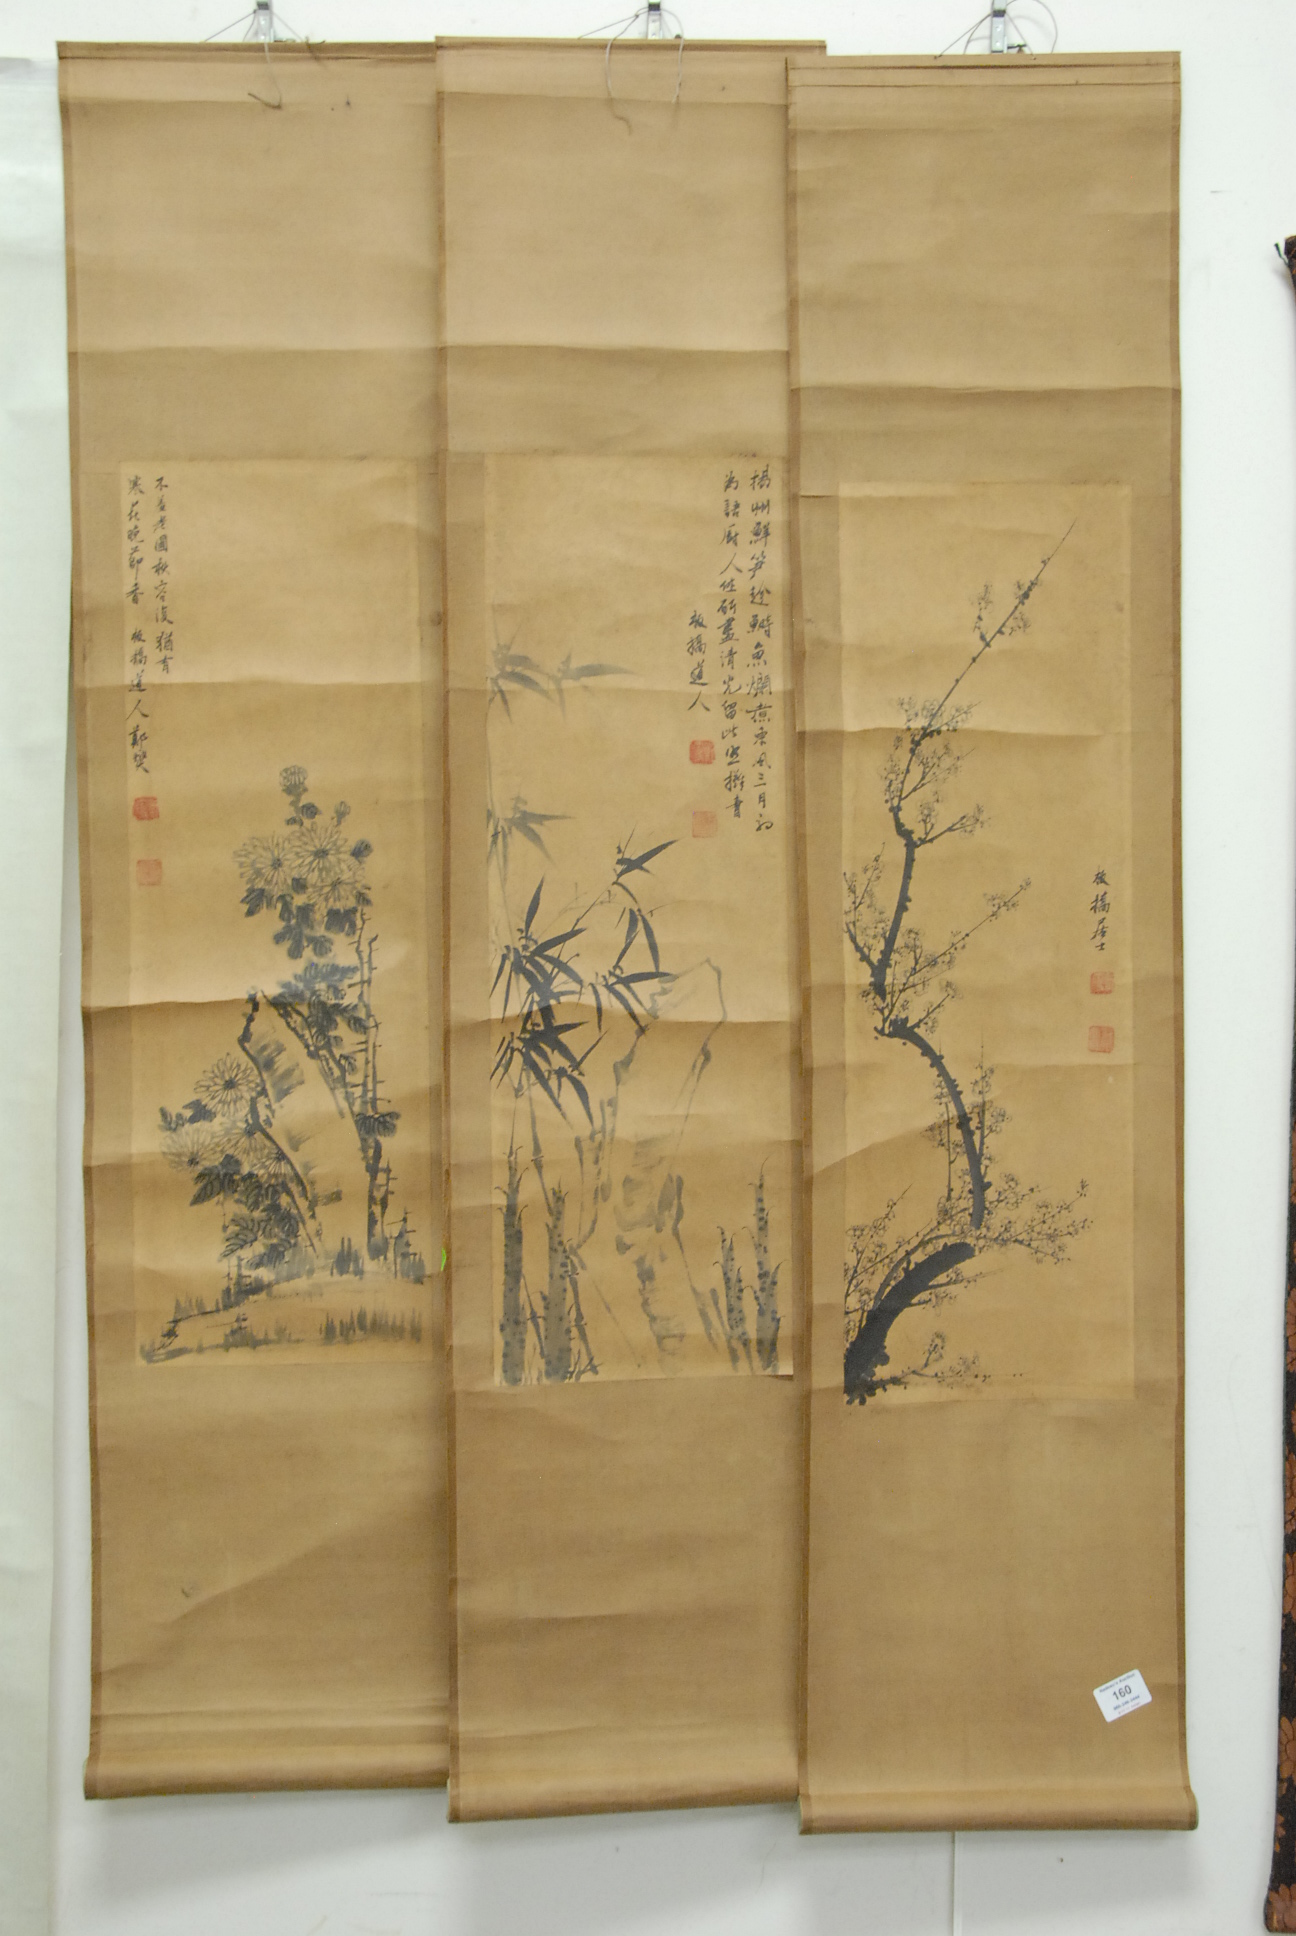 揚州鮮笋趁鰣魚爛煮東風三月初
為語廚人休斫盡清光留此照攤書
板橋道人
不羞老圃秋容淡猶有
寒花晚節香 板橋道人鄭燮
板橋居士
160